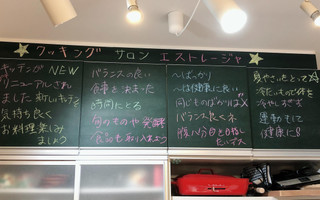 クッキング サロン エストレージャ
キッチンが NEW
リニューアルされ
ました 新しいキッチン
気持ち良く
お料理楽しみ
ましょう
バランスの良い
食事を決まった
時間にとる
旬のものや発酵
食品も取り入れよう
〜ばっかり
〜は健康に良い
同じものばかりは✕
バランス良く
腹八分目を目指し
たいデス
冷たいもの
冷やしすぎず
運動もして
健康に!!